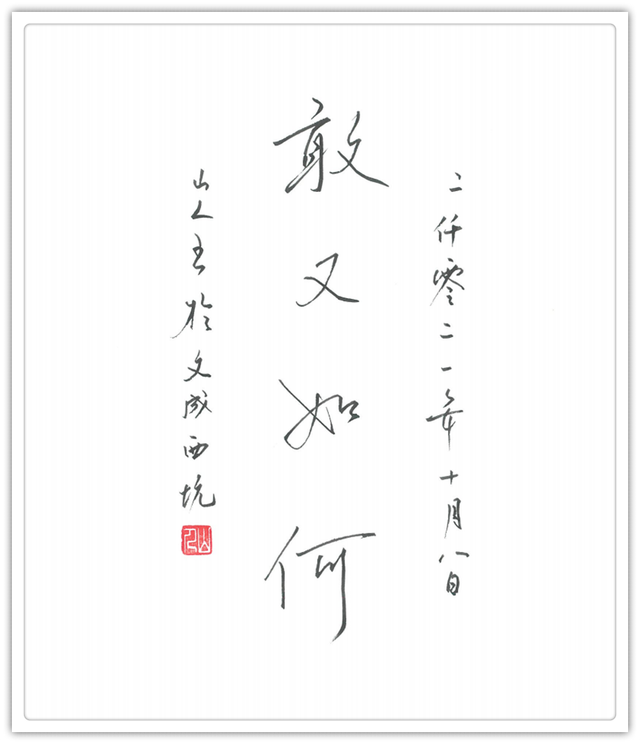 二仟零二一年十月八日
敢又如何
山人書於文成西坑
山人